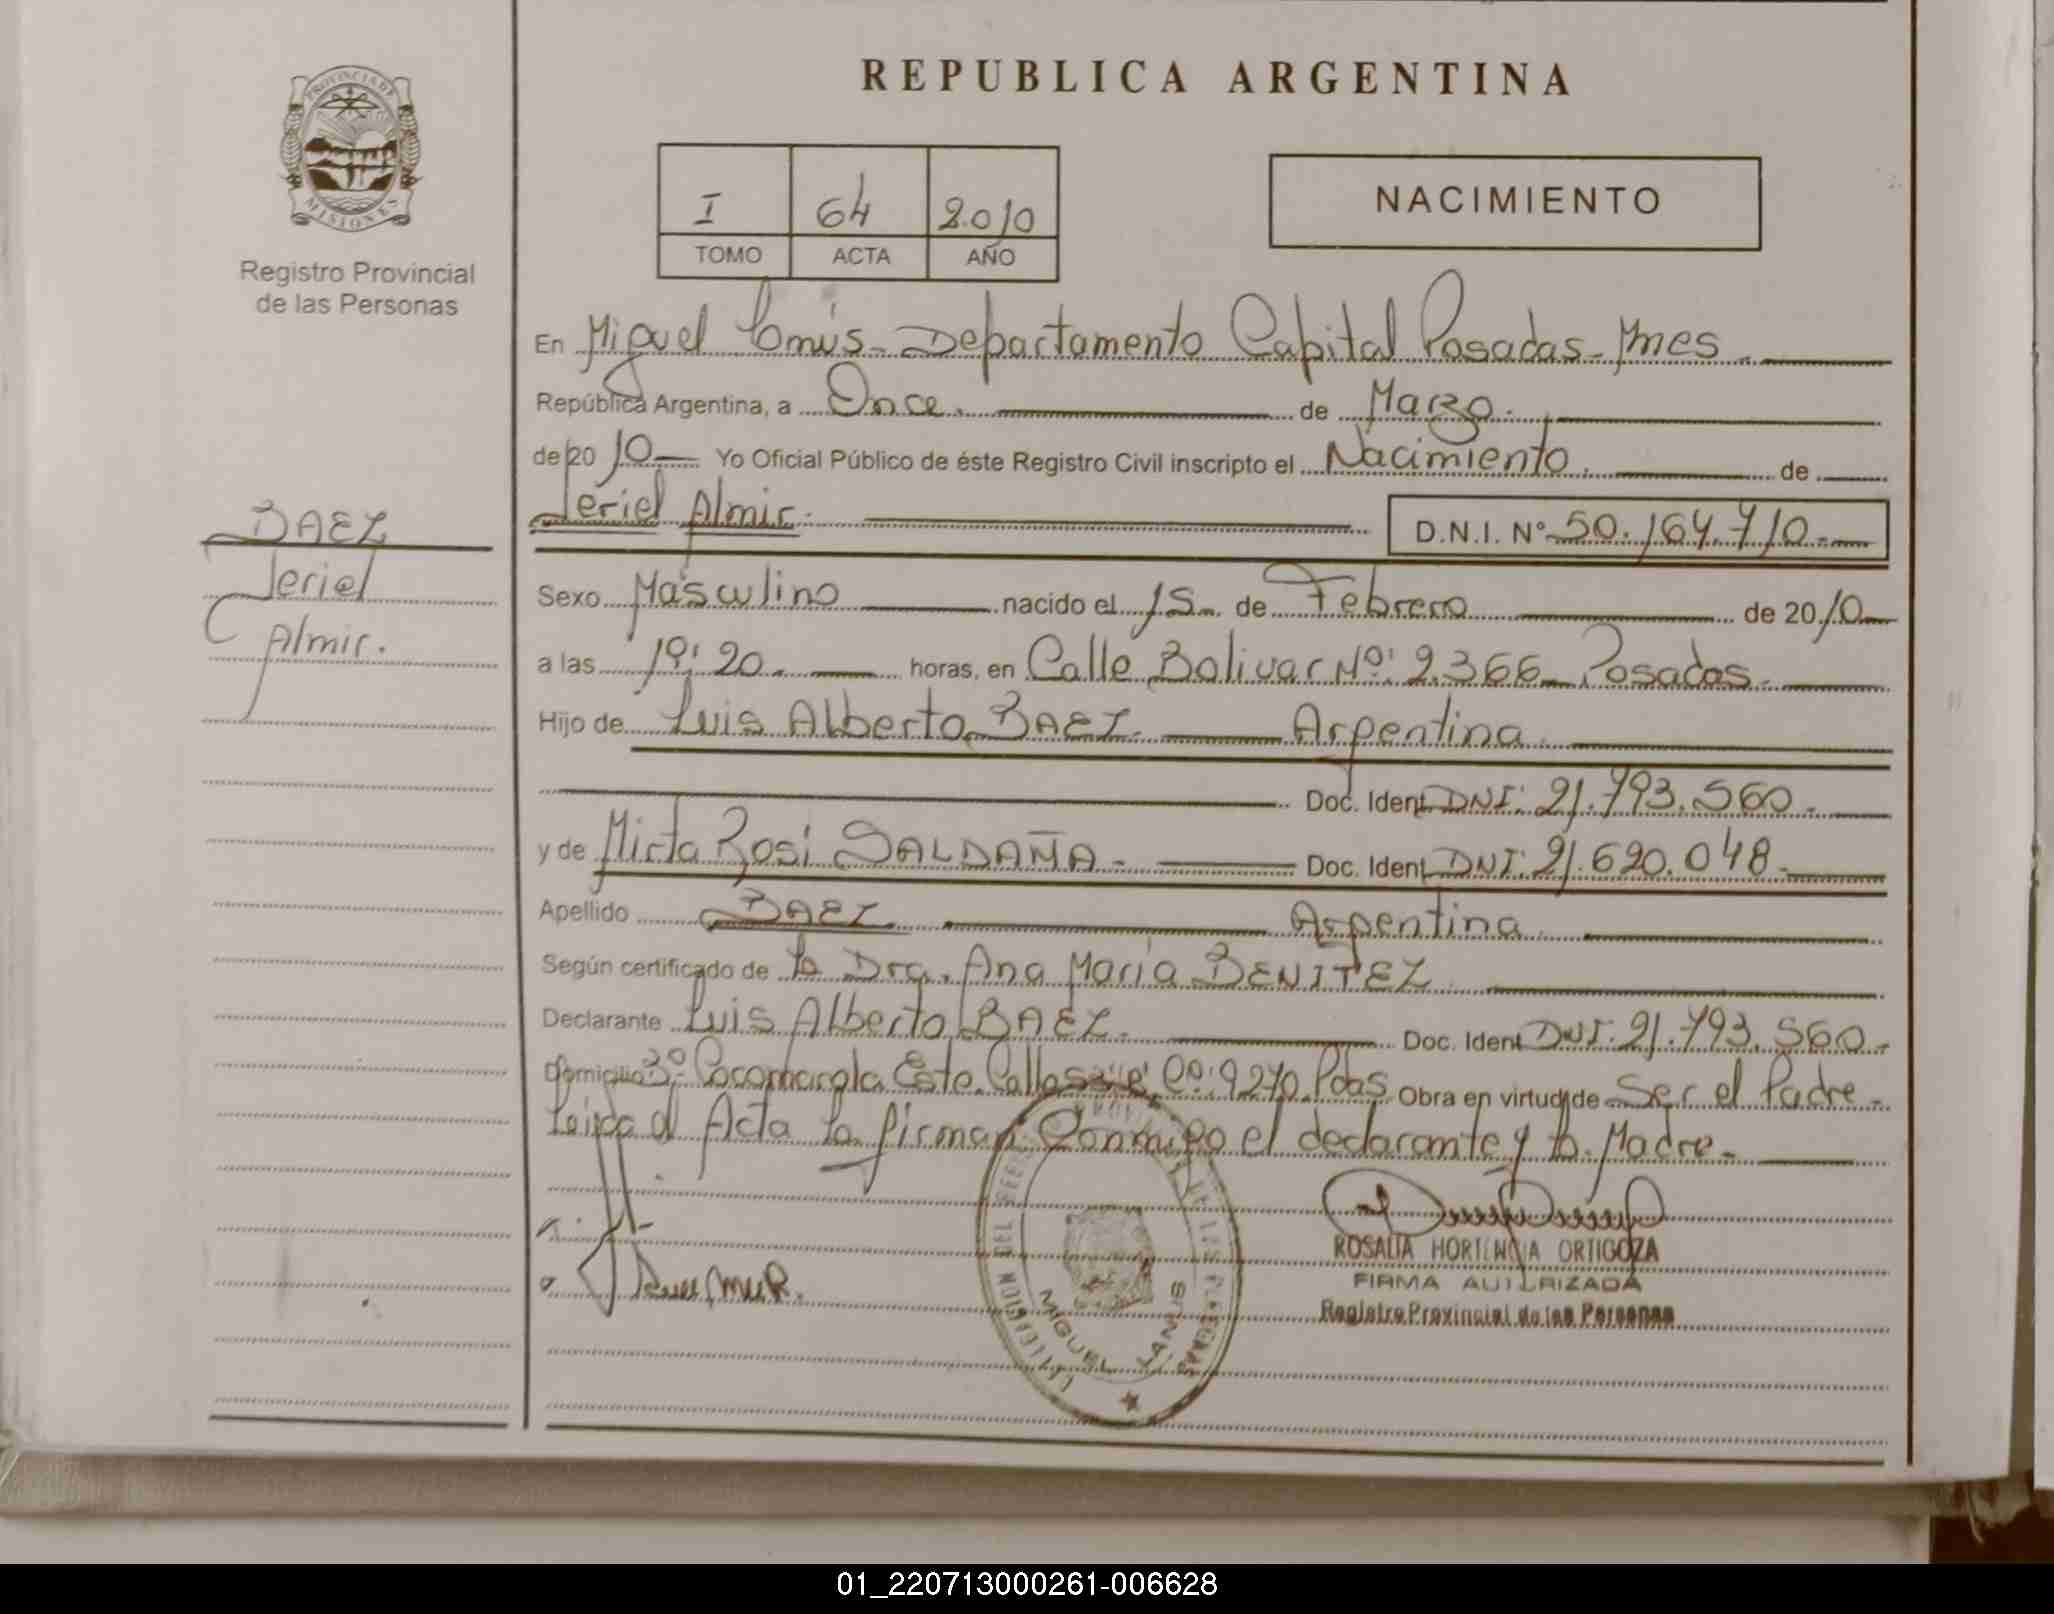 REPUBLICA ARGENTINA
PROVINCIA DE
MISIONES
Registro Provincial
de las Personas
I 64 2.010
TOMO ACTA AÑO
NACIMIENTO
En Miguel Lanús - Departamento Capital Posadas - Mnes -
República Argentina, a Once. de Marzo.
de 20 10 Yo Oficial Público de éste Registro Civil inscripto el Nacimiento. de
Jeriel Almir. D.N.I. Nº 50.164.710.-
BAEZ
Jeriel
Almir.
Sexo Masculino nacido el 15 de Febrero de 20 10
a las 19:20 horas, en Calle Bolivar Nº: 2.366 - Posadas.
Hijo de Luis Alberto BAEZ. Argentina.
Doc. Ident DNI: 21.793.560.-
y de Mirta Rosi SALDAÑA - Doc. Ident DNI: 21.620.048 -
Apellido BAEZ Argentina.
Según certificado de la Dra. Ana María BENITEZ
Declarante Luis Alberto BAEZ. Doc. Ident DNI: 21.793.560.-
Domicilio Cocomarola Este. 9270. Pdas Obra en virtud de Ser el Padre -
Leída el Acta la firman Conmigo el declarante y la Madre -
ROSALIA HORTENCIA ORTIGOZA
FIRMA AUTORIZADA
Registro Provincial de las Personas
MIGUEL LANUS
01_220713000261-006628